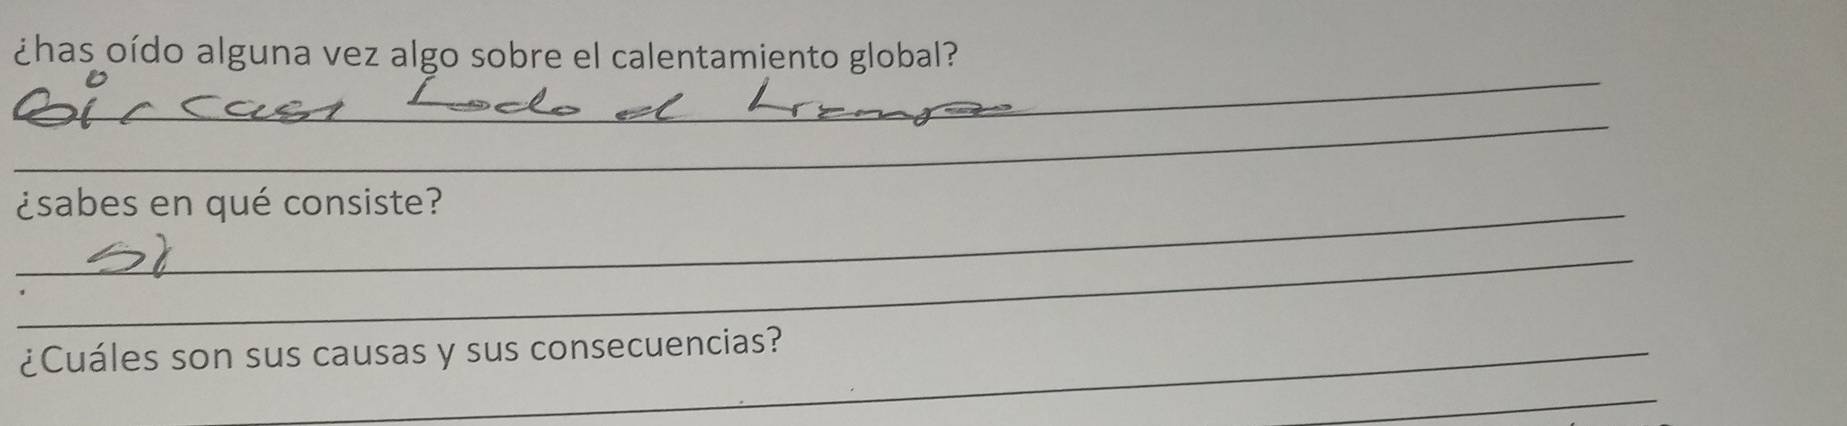 ¿has oído alguna vez algo sobre el calentamiento global?
casi todo el tiempo
¿sabes en qué consiste?
si
¿Cuáles son sus causas y sus consecuencias?